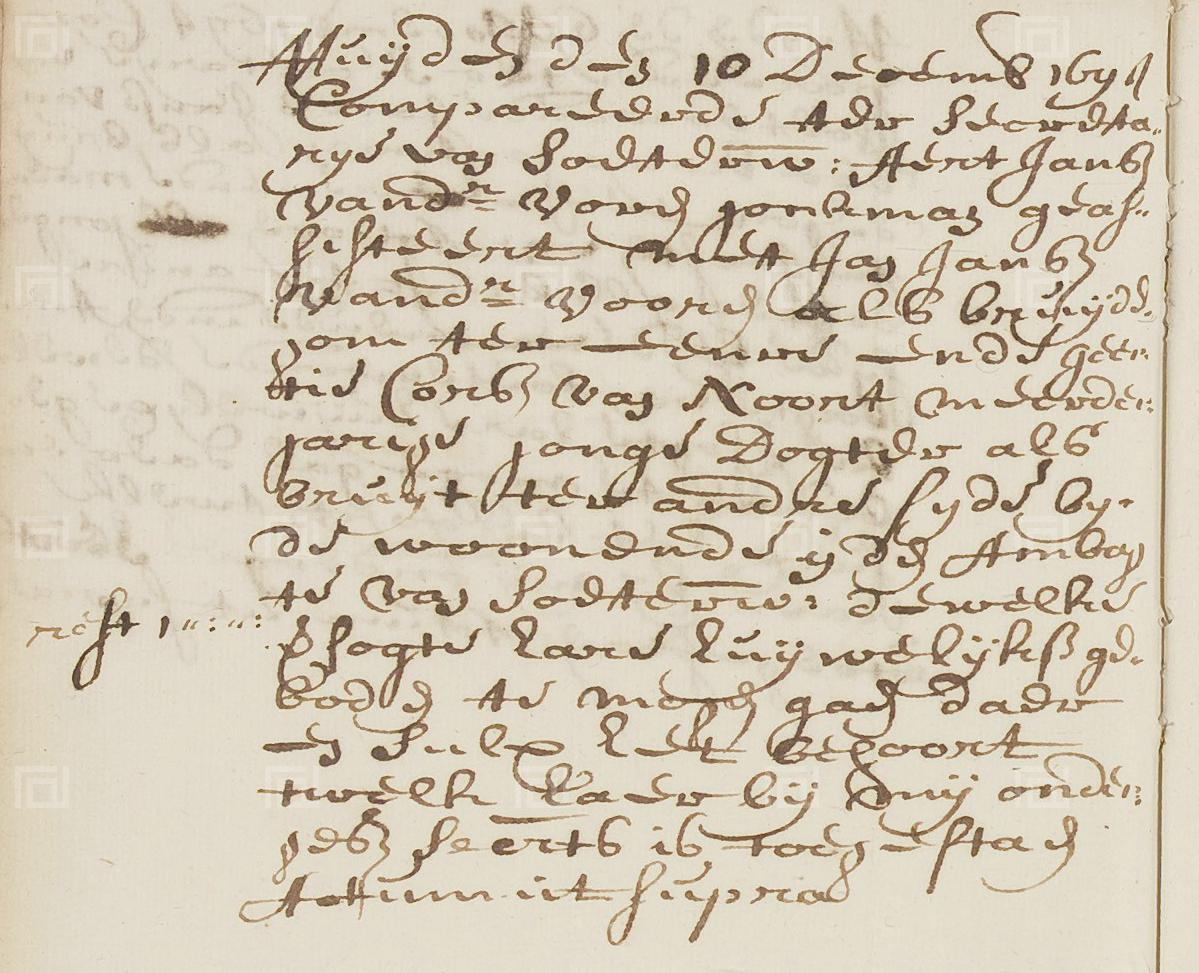 Huyden den 10 Decemb 1694
Compareerde ter secreta-
rye van Soeterw: Aert Jansz
vandr Voord jonkman geas-
sisteert met Jan Jansz
vandr Voord als bruyde-
gom ter eenre ende geer-
tie Corsz van Noort meerder-
jarige jonge Dogter als
bruyt ter andre syde by-
de woonende in den Ambag
te van Soeterw: dewelke
versogte hare huywelykse ge-
boden te mogen gaen daer
en sulx het behoort
twelk haer by my onder-
gesz secrts is toegestaen
Actum ut supra
rest 1 :":":